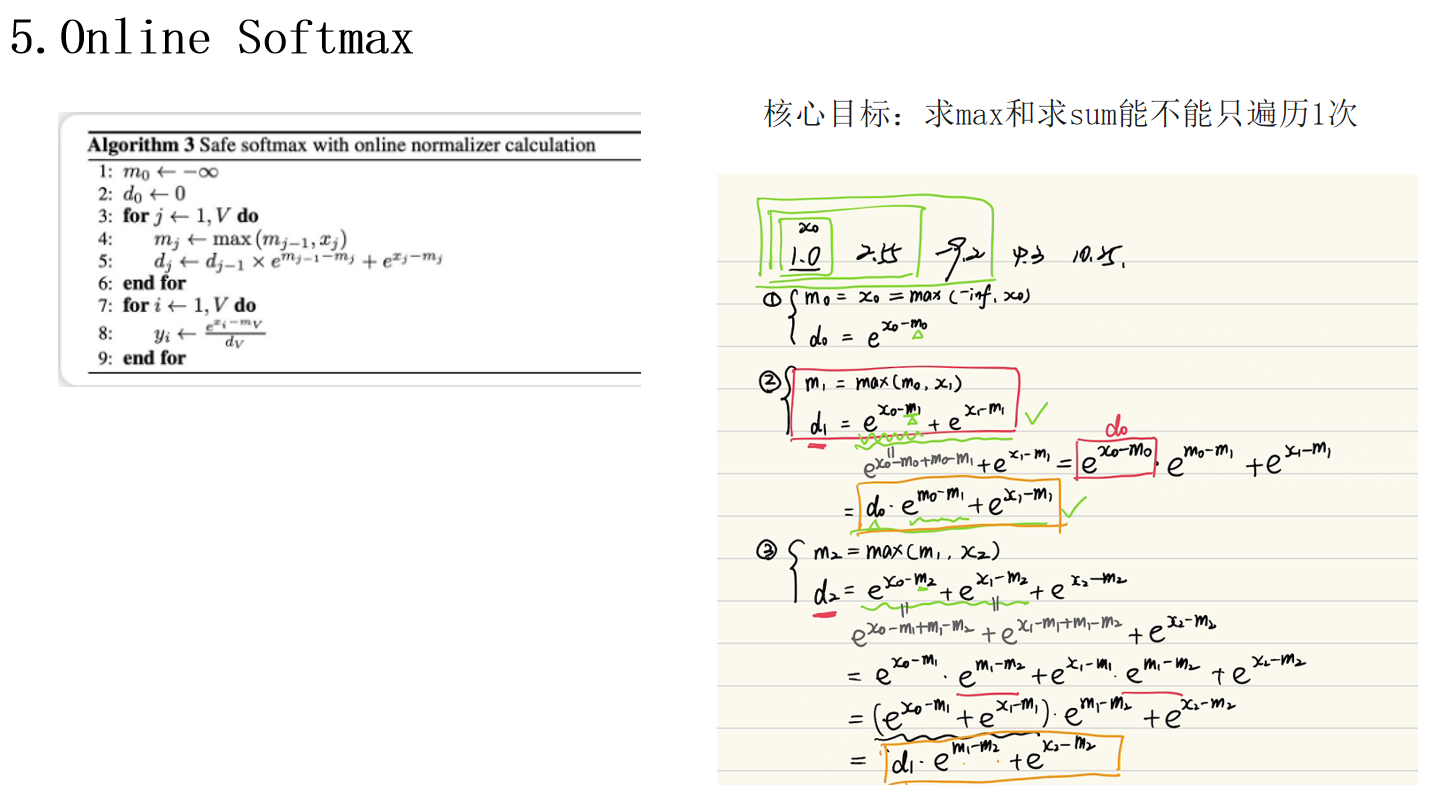 5.Online Softmax
Algorithm 3 Safe softmax with online normalizer calculation
1: m₀ ← −∞
2: d₀ ← 0
3: for j ← 1, V do
4: mⱼ ← max (mⱼ₋₁, xⱼ)
5: dⱼ ← dⱼ₋₁ × e^{mⱼ₋₁−mⱼ} + e^{xⱼ−mⱼ}
6: end for
7: for i ← 1, V do
8: yᵢ ← e^{xᵢ−m_V} / d_V
9: end for
核心目标：求max和求sum能不能只遍历1次
x₀
1.0 2.55 -9.2 4.3 10.25.
① { m₀ = x₀ = max (-inf, x₀)
d₀ = e^{x₀-m₀}
② { m₁ = max(m₀, x₁)
d₁ = e^{x₀-m₁} + e^{x₁-m₁} ✓
d₀
e^{x₀-m₀+m₀-m₁} + e^{x₁-m₁} = e^{x₀-m₀} · e^{m₀-m₁} + e^{x₁-m₁}
= d₀ · e^{m₀-m₁} + e^{x₁-m₁} ✓
③ { m₂ = max(m₁, x₂)
d₂ = e^{x₀-m₂} + e^{x₁-m₂} + e^{x₂-m₂}
e^{x₀-m₁+m₁-m₂} + e^{x₁-m₁+m₁-m₂} + e^{x₂-m₂}
= e^{x₀-m₁} · e^{m₁-m₂} + e^{x₁-m₁} · e^{m₁-m₂} + e^{x₂-m₂}
= (e^{x₀-m₁} + e^{x₁-m₁}) · e^{m₁-m₂} + e^{x₂-m₂}
= d₁ · e^{m₁-m₂} + e^{x₂-m₂}